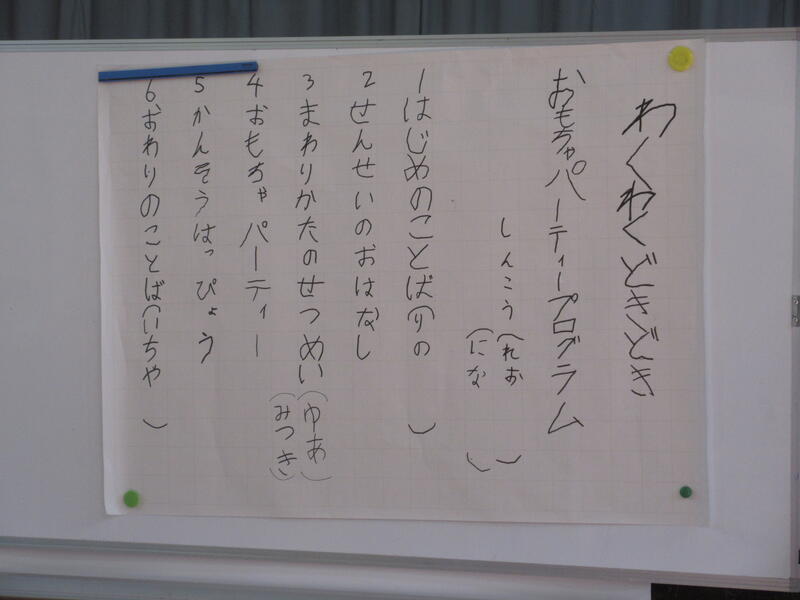 わくわくどきどき
おもちゃパーティープログラム
しんこう(れお)
(にな)
1はじめのことば(りの)
2せんせいのおはなし
3まわりかたのせつめい(ゆあ)
(みつき)
4おもちゃパーティー
5かんそうはっぴょう
6おわりのことば(いちや)